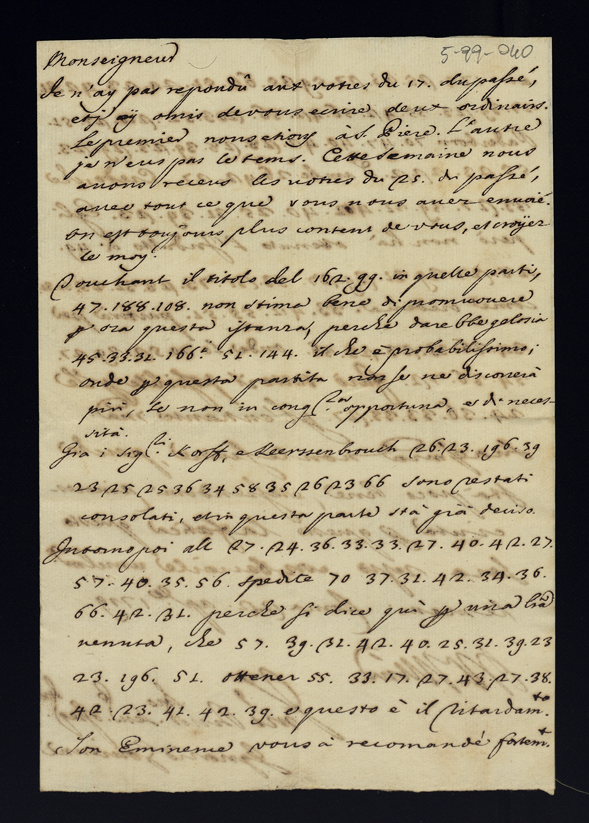 5-99-040
Monseigneur
Je n'ay pas repondû aux votres du 17. du passé,
et j'ay omis de vous ecrire deux ordinairs.
Le premier nous etions a S. Piere. L'autre
je n'eus pas le tems. Cette semaine nous
avons receus les votres du 25. du passé,
avec tout ce que vous nous avez envoié.
On est toujours plus content de vous, et croyez
le moy.
Touchant il titolo del 162.99. in quelle parti,
47.188.108. non stima bene di promuovere
p ora questa istanza, perche darebbe gelosia
45.33.31. 166.a 51. 144. il che è probabilissimo;
onde p questa partita non se ne discorrerà
piú, se non in cong.ra opportuna, e di neces-
sità.
Gia i Sig.ri Korff, e Kerssenbrouch 26.23. 196.39
23 25 25 36 34 58 35 26 23 66 sono restati
consolati, et in questa parte stà già deciso.
Intorno poi all 27.24.36.33.33.27.40.42.27.
57.40.35.56. spedite 70 37.31.42.34.36.
66.42.31. perche si dice qui p una lra
venuta, che 57. 39.31.42.40.25.31.39.23
23.196. 51. ottener 55. 33.17.27.43.27.38.
42.23.41.42.39. e questo è il ritardam.to
Son Eminence vous à recomandé fortem.t